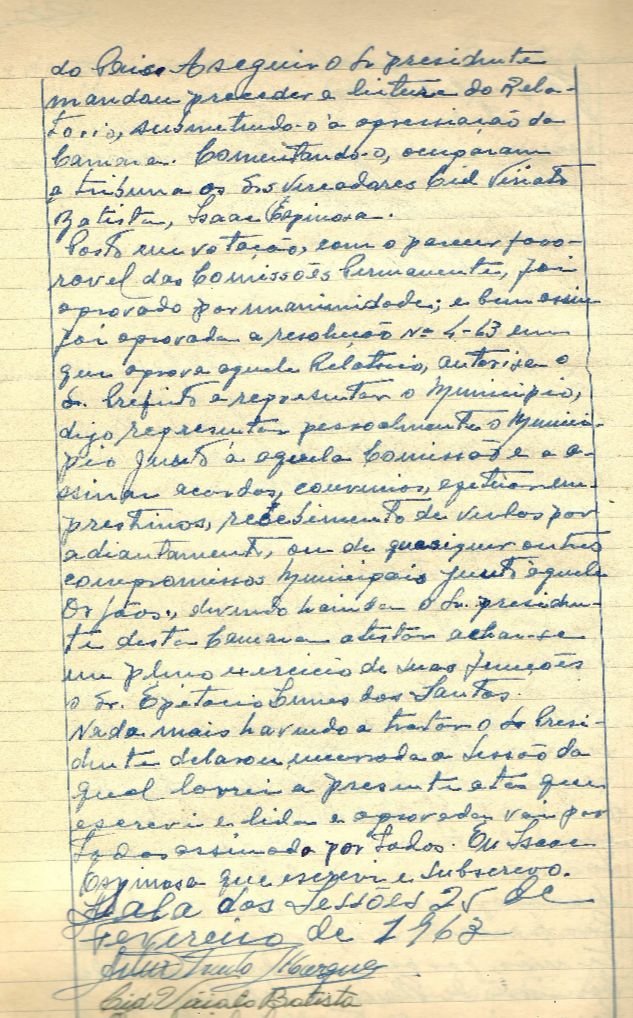 do Paiso A seguir O Sr presidente
mandou proceder a leitura do Rela-
torio, submetendo-o à apressiação da
Camara. Comentando-o, ocuparam
a tribuna os Srs vereadores Cid Viriato
Batista, Isaac Espinosa.
Posto em votação, com o parecer favo-
ravel das Comissões Permanente, foi
aprovado por unanimidade; e bem assim
foi aprovada a resolução Nº 4-63 em
que aprova aquele Relatorio, autorisa o
Sr. Prefeito a representar o Municipio,
digo representar pessoalmente o Munici-
pio junto à aquela Comissão e a a-
ssinar acordos, convenios, em-
prestimos, recebimento de verbas por
adiantamento, ou de quasiquer outros
compromissos Municipais junto àquele
Orgãos, devendo hainda o Sr. presiden-
te desta Camara atestar achar-se
em pleno exercicio de suas funções
o Sr. Epitacio Lemes dos Santos.
Nada mais havendo a tratar o Sr Presi-
dente declarou encerrada a Sessão da
qual lavrei a presente ata que
escrevi e lida e aprovada vai por
todos assinada por todos. Eu Isaac
Espinosa que escrevi e subscrevo.
Sala das Sessões 25 de
Fevereiro de 1963
Cid Viriato Batista